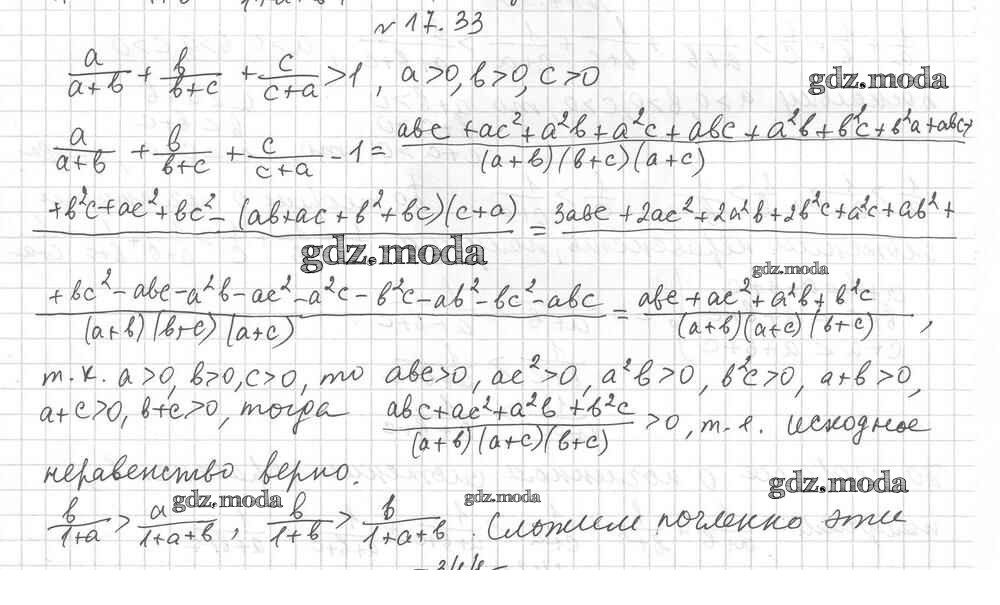 № 17.33
a/(a+b) + b/(b+c) + c/(c+a) > 1, a>0, b>0, c>0
gdz.moda
a/(a+b) + b/(b+c) + c/(c+a) - 1 = (abc + ac² + a²b + a²c + abc + a²b + b²c + b²a + abc +)/((a+b)(b+c)(a+c))
+ b²c + ac² + bc² - (ab+ac+b²+bc)(c+a) = 3abc + 2ac² + 2a²b + 2b²c + a²c + ab² +
gdz.moda
gdz.moda
(+ bc² - abc - a²b - ac² - a²c - b²c - ab² - bc² - abc)/((a+b)(b+c)(a+c)) = (abc + ac² + a²b + b²c)/((a+b)(a+c)(b+c)),
т.к. a>0, b>0, c>0, то abc>0, ac²>0, a²b>0, b²c>0, a+b>0,
a+c>0, b+c>0, тогда (abc+ac²+a²b+b²c)/((a+b)(a+c)(b+c)) >0, т.е. исходное
неравенство верно.
gdz.moda
gdz.moda
gdz.moda
b/(1+a) > a/(1+a+b), b/(1+b) > b/(1+a+b). Сложим почленно эти